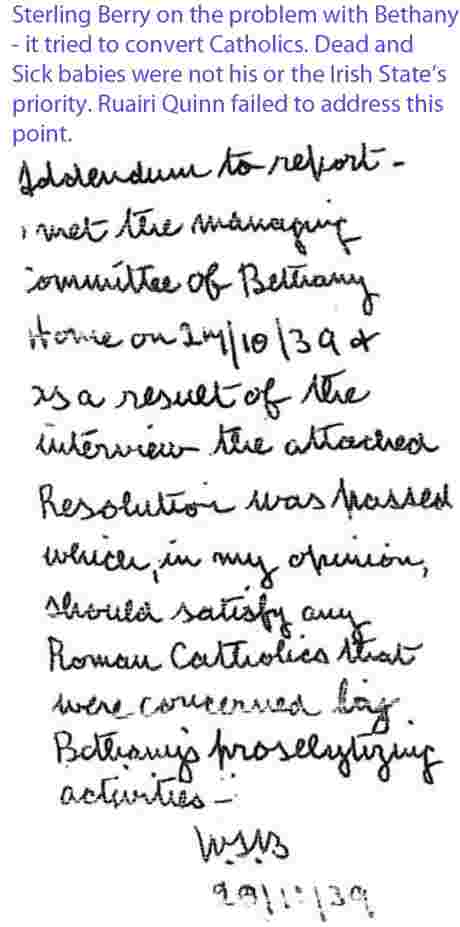 Sterling Berry on the problem with Bethany
- it tried to convert Catholics. Dead and
Sick babies were not his or the Irish State's
priority. Ruairi Quinn failed to address this
point.
Addendum to report -
I met the managing
Committee of Bethany
Home on 24/10/39 &
as a result of the
interview the attached
Resolution was passed
which, in my opinion,
should satisfy any
Roman Catholics that
were concerned by
Bethany's proselytizing
activities -
W.S.B
/39